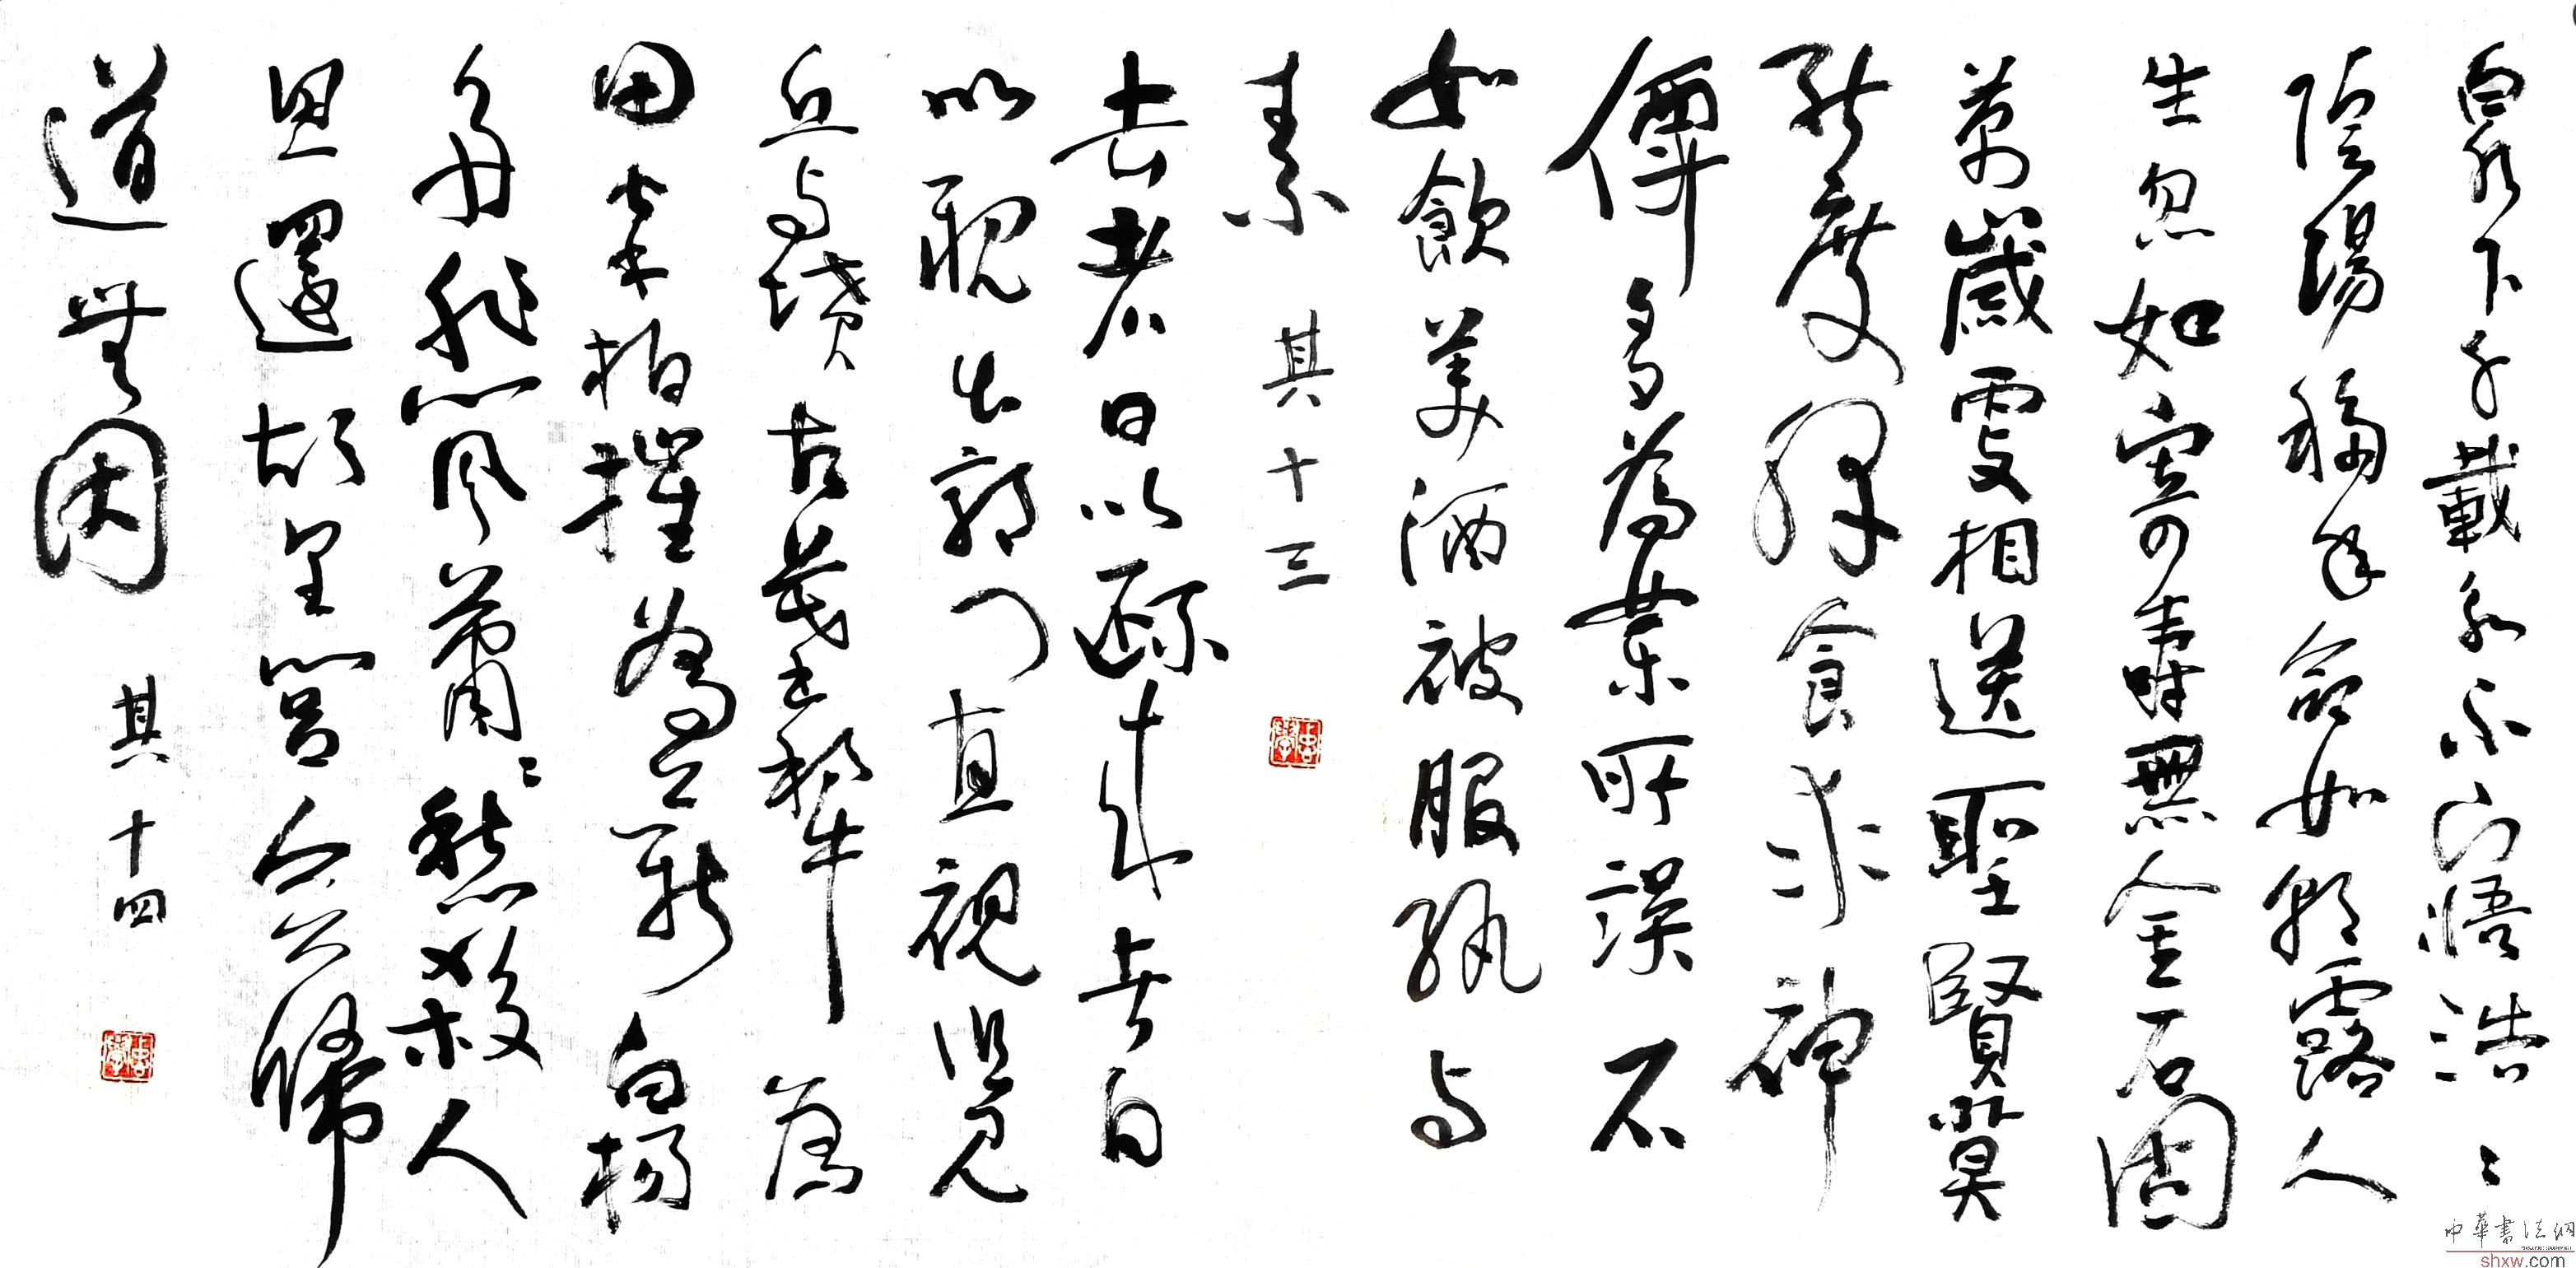 泉下千載永不寤浩〻
陰陽移年命如朝露人
生忽如寄壽無金石固
萬歲更相送聖賢莫
能度服食求神
僊多為藥所誤不
如飲美酒被服紈与
素 其十三
去者日以疏來者日
以親出郭門直視但見
丘与墳古墓犁為
田松柏摧為薪白楊
多悲風蕭〻愁殺人
思還故里閭欲歸
道無因 其十四
中華書法網
shxw.com